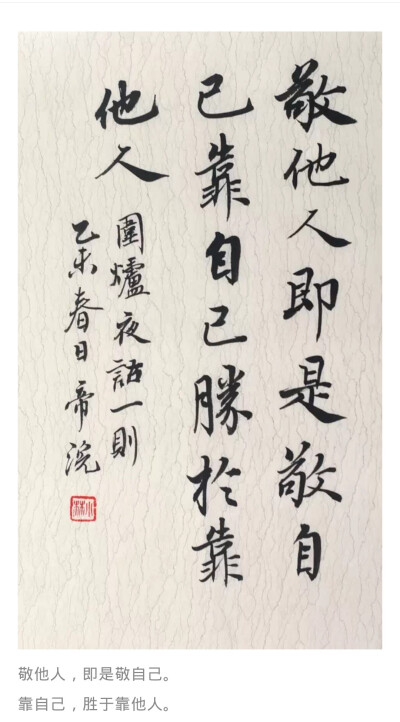 敬他人即是敬自
己靠自己勝於靠
他人
圍爐夜話一則
乙未春日帝浣
敬他人，即是敬自己。
靠自己，胜于靠他人。